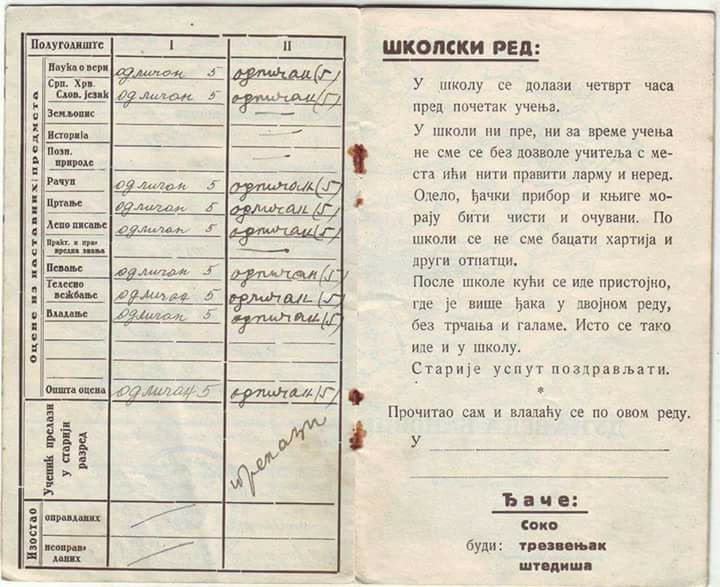 Полугодиште I II
Оцене из наставних предмета
Наука о вери одличан 5 одличан (5)
Срп. Хрв.
Слов. језик одличан 5 одличан (5)
Земљопис —
Историја —
Позн.
природе —
Рачун одличан 5 одличан (5)
Цртање одличан 5 одличан (5)
Лепо писање одличан 5 одличан (5)
Практ. и при-
вредна знања —
Певање одличан 5 одличан (5)
Телесно
вежбање одличан 5 одличан (5)
Владање одличан 5 одличан (5)
Општа оцена одличан 5 одличан (5)
Ученик прелази
у старији
разред
прелази
Изостао
оправданих
неоправ-
даних
ШКОЛСКИ РЕД:
У школу се долази четврт часа
пред почетак учења.
У школи ни пре, ни за време учења
не сме се без дозволе учитеља с ме-
ста ићи нити правити ларму и неред.
Одело, ђачки прибор и књиге мо-
рају бити чисти и очувани. По
школи се не сме бацати хартија и
други отпатци.
После школе кући се иде пристојно,
где је више ђака у двојном реду,
без трчања и галаме. Исто се тако
иде и у школу.
Старије успут поздрављати.
*
Прочитао сам и владаћу се по овом реду.
У
Ђаче:
Соко
буди: трезвењак
штедиша